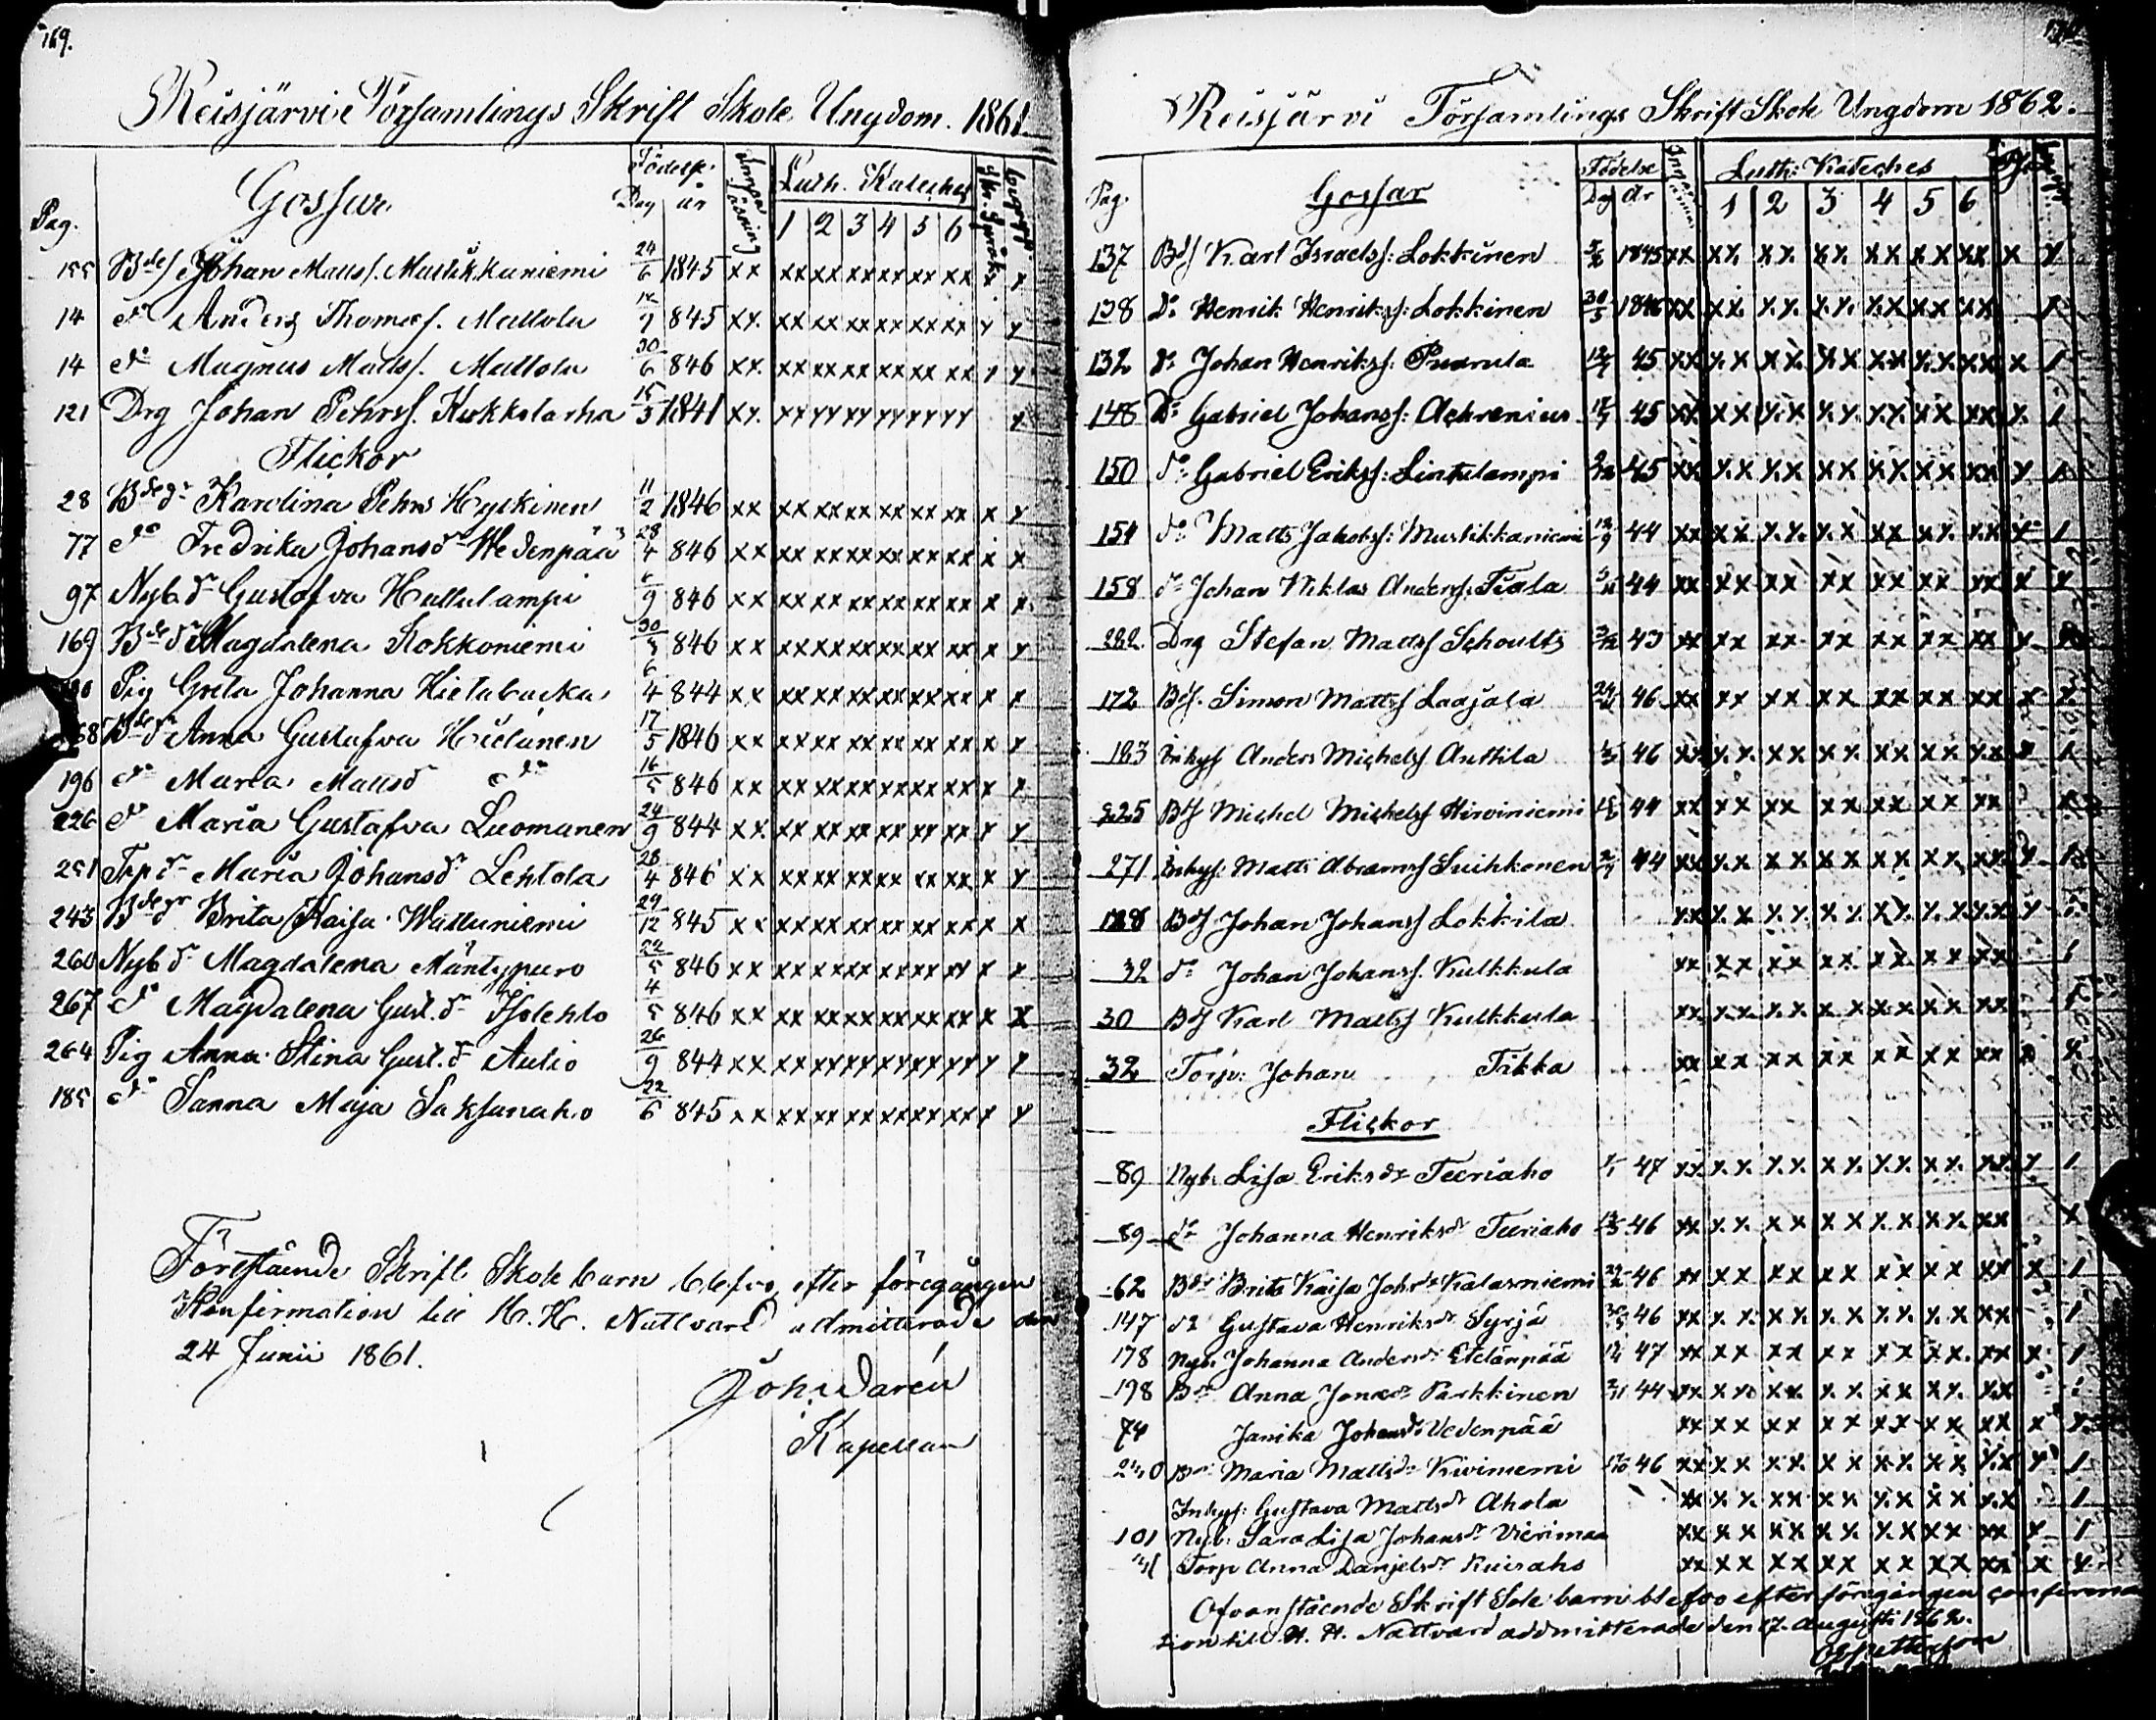 169.
Reisjärvi Församlings Skrift Skole Ungdom. 1861
Pag. Gossar Födelse Dag år Innan läsning Luth. Kateches 1 2 3 4 5 6 Skr. Språk Begrepp
155 Bdes Johan Matts. Mustikkaniemi 24/6 1845 xx xx xx xx xx xx xx x x
14 do Anders Thomæs. Mattola 845 xx xx xx xx xx xx xx x x
14 do Magnus Matts. Mattola 30/6 846 xx xx xx xx xx xx xx x x
121 Drg Johan Pehrss. Kukkolanha 15/3 1841 xx xx xx xx xx xx xx x
Flickor
28 Bdedr Karolina Pehrs Hyskinen 11/2 1846 xx xx xx xx xx xx xx x x
77 do Fredrika Johansdr Wedenpää 28/4 846 xx xx xx xx xx xx xx x x
97 Nyb.dr Gustafva Hallulampi 6/9 846 xx xx xx xx xx xx xx x x
169 Bdedr Magdalena Kokkoniemi 30/3 846 xx xx xx xx xx xx xx x x
Pig Greta Johanna Hietabacka 6/4 844 xx xx xx xx xx xx xx x x
Bdedr Anna Gustafva Huilunen 17/5 1846 xx xx xx xx xx xx xx x x
196 do Maria Mattsd do 16/5 846 xx xx xx xx xx xx xx x x
226 do Maria Gustafva Luomanen 24/9 844 xx xx xx xx xx xx xx x x
251 Trpdr Maria Johansdr Lehtola 28/4 846 xx xx xx xx xx xx xx x x
243 Bdedr Brita Kaisa Wattuniemi 29/12 845 xx xx xx xx xx xx xx x x
260 Nyb dr Magdalena Mäntypuro 22/5 846 xx xx xx xx xx xx xx x x
267 do Magdalena Gust.dr Isolehto 4/5 846 xx xx xx xx xx xx xx x x
264 Pig Anna Stina Gust.dr Aulio 26/9 844 xx xx xx xx xx xx xx x x
185 do Sanna Maja Saksanaho 22/6 845 xx xx xx xx xx xx xx x x
Förestående Skrift Skole barn blefvo efter föregången
Konfirmation till H. H. Nattvard admitterade den
24 Junii 1861.
Joh. Daren
Kapellan
Reisjärvi Församlings Skrift Skole Ungdom 1862.
Pag. Gossar Födelse Dag år Luth: Kateches 1 2 3 4 5 6
137 Bds Karl Israelss: Lokkinen 1845 xx xx xx xx xx xx xx x x
138 Do Henrik Henrikss: Lokkinen 30/5 1846 xx xx xx xx xx xx xx
132 Do Johan Henrikss: Puarula 45 xx xx xx xx xx xx xx x 1
148 Do Gabriel Johanss: Achrenius 45 xx xx xx xx xx xx xx x 1
150 do Gabriel Erikss: Lintulampi 45 xx xx xx xx xx xx xx x 1
154 do Matts Jakobss: Mustikkaniemi 44 xx xx xx xx xx xx xx x 1
158 do Johan Niklas Anderss: Tiala 44 xx xx xx xx xx xx xx x x
282 Drg Stefan Mattss Schoultz 43 xx xx xx xx xx xx xx x
172 Bds. Simon Mattss Laajala 46 xx xx xx xx xx xx xx x x
183 Inhys Anders Michelss Anttila 46 xx xx xx xx xx xx xx x 1
225 Bds Michel Michelss Hirviniemi 44 xx xx xx xx xx xx xx
271 Inhys: Matts Abramss Suihkonen 44 xx xx xx xx xx xx xx x 1
128 Bds Johan Johanss Lokkila xx xx xx xx xx xx xx x
32 do Johan Johanss. Kulkkula xx xx xx xx xx xx xx 1
30 Bds Karl Mattss Kulkkula xx xx xx xx xx xx xx
32 Torp: Johan Tikka xx xx xx xx xx xx xx x x
Flickor
89 Nyb. Lisa Eriksdr Teeriaho 47 xx xx xx xx xx xx xx x 1
89 do Johanna Henriksdr Teeriaho 46 xx xx xx xx xx xx xx x
62 Bdr Brita Kaisa Johsdr Kalaxniemi 46 xx xx xx xx xx xx xx x 1
147 dr Gustava Henriksdr Syrjä 46 xx xx xx xx xx xx xx 1
178 Nyb. Johanna Andersdr Etelänpää 47 xx xx xx xx xx xx xx x 1
198 Bdr Anna Jonasdr Parkkinen 44 xx xx xx xx xx xx xx
74 Janika Johansdr Vedenpää xx xx xx xx xx xx xx x x
240 Bdr Maria Mattsdr Kiviniemi 46 xx xx xx xx xx xx xx x 1
Inhys: Gustava Mattsdr Ahola xx xx xx xx xx xx xx 1
101 Nyb. Sara Lisa Johansdr Vierimaa xx xx xx xx xx xx xx x 1
Torp Anna Danjelsdr Kuisaho xx xx xx xx xx xx xx x x
Ofvanstående Skrift Sole barn blefvo efter föregången confirma
tion till H. H. Nattvard addmitterade den 17. Augusti 1862.